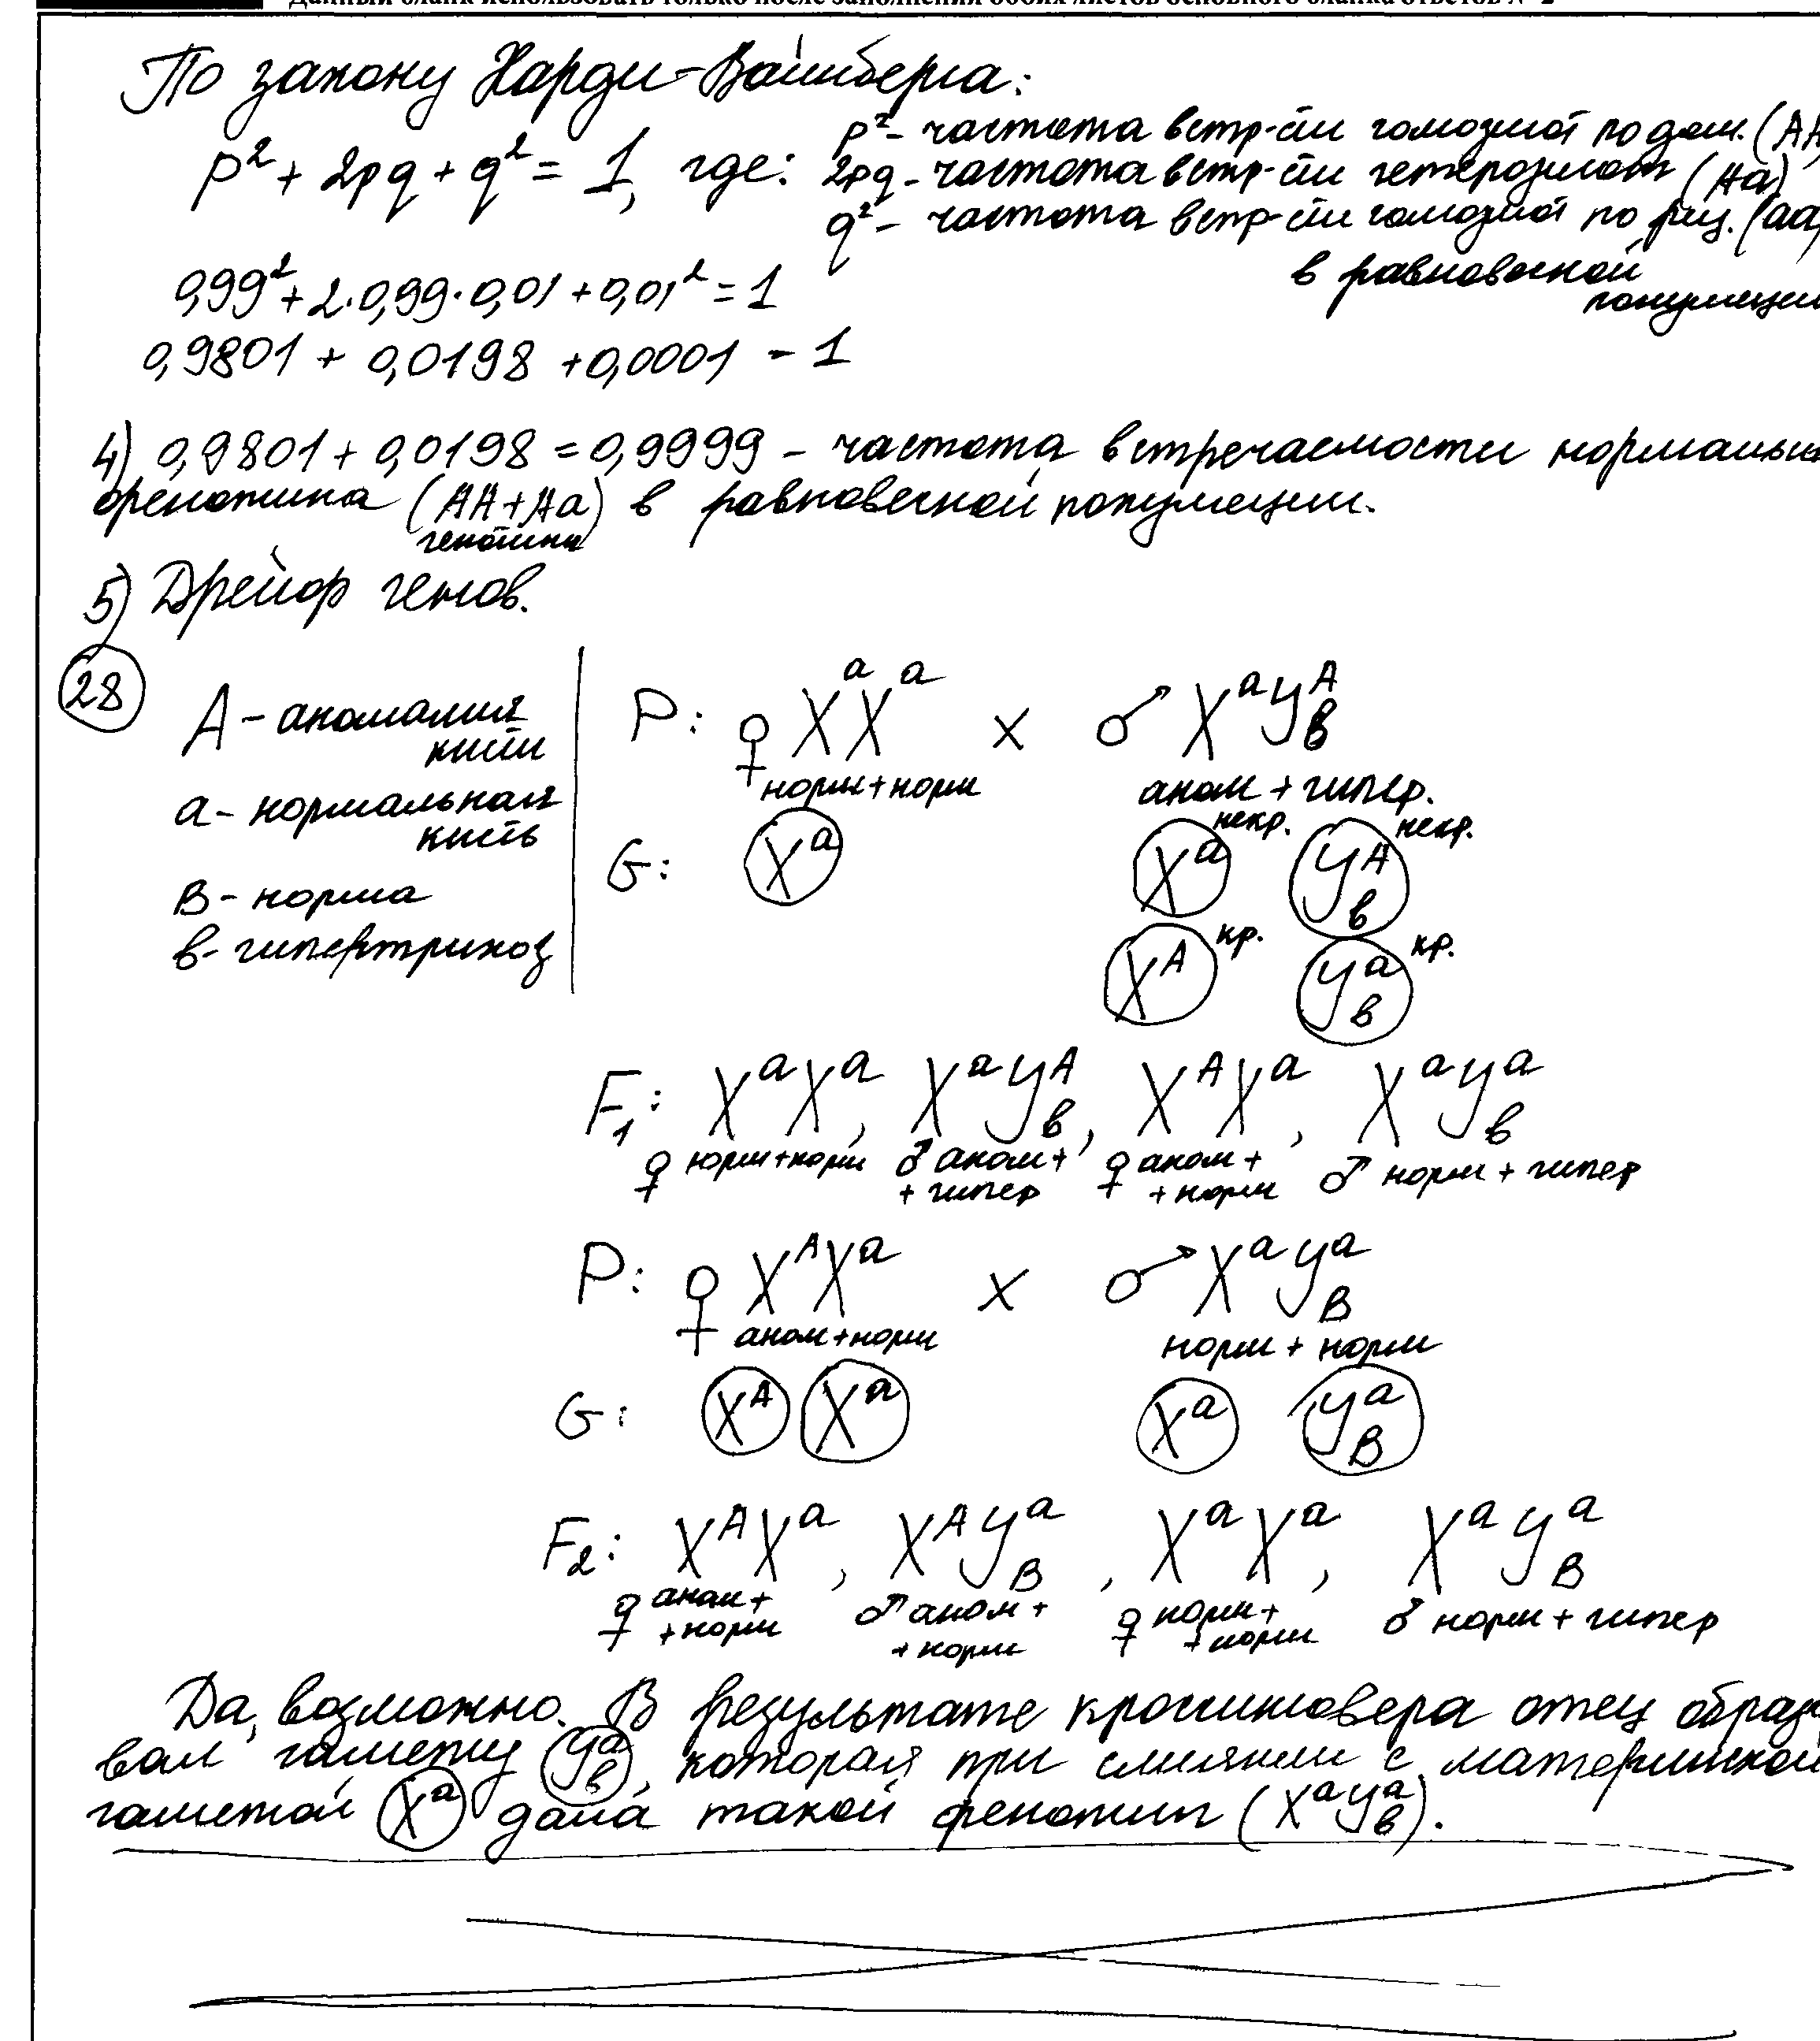 Данный бланк использовать только после заполнения обоих листов основного бланка ответов № 2
По закону Харди-Вайнберга:
p² + 2pq + q² = 1, где:
p² - частота встр-сти гомозигот по дом. (АА)
2pq - частота встр-сти гетерозигот (Аа)
q² - частота встр-сти гомозигот по рец. (аа)
в равновесной
популяции
0,99² + 2·0,99·0,01 + 0,01² = 1
0,9801 + 0,0198 + 0,0001 = 1
4) 0,9801 + 0,0198 = 0,9999 - частота встречаемости нормальн
фенотипа (АА+Аа) в равновесной популяции.
генотипы
5) Дрейф генов.
28
А - аномалия
кисти
а - нормальная
кисть
В - норма
в - гипертрихоз
P: ♀ XᵃXᵃ x ♂ XᵃYᴬв
норм+норм аном + гипер.
G: Xᵃ Xᵃ некр. Yᴬв некр.
Xᴬ кр. Yᵃв кр.
F₁: XᵃXᵃ, XᵃYᴬв, XᴬXᵃ, XᵃYᵃв
♀ норм+норм ♂ аном+ ♀ аном+ ♂ норм + гипер
+ гипер + норм
P: ♀ XᴬXᵃ x ♂ XᵃYᵃВ
аном+норм норм + норм
G: Xᴬ Xᵃ Xᵃ YᵃВ
F₂: XᴬXᵃ, XᴬYᵃВ, XᵃXᵃ, XᵃYᵃВ
♀ аном+ ♂ аном+ ♀ норм+ ♂ норм + гипер
+норм + норм + норм
Да, возможно. В результате кроссинговера отец образо
вал гамету Yᵃв, которая при слиянии с материнской
гаметой Xᵃ дала такой фенотип (XᵃYᵃв).